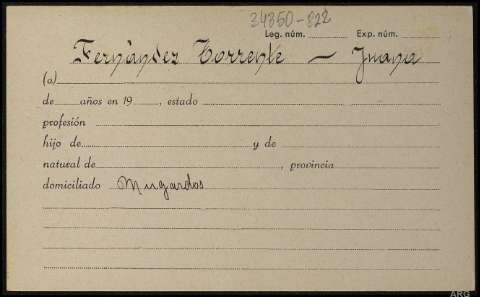 34350-822
Leg. núm. Exp. núm.
Fernández Torrente — Juana
(a)
de años en 19 , estado
profesión
hijo de y de
natural de , provincia
domiciliado Mugardos
ARG